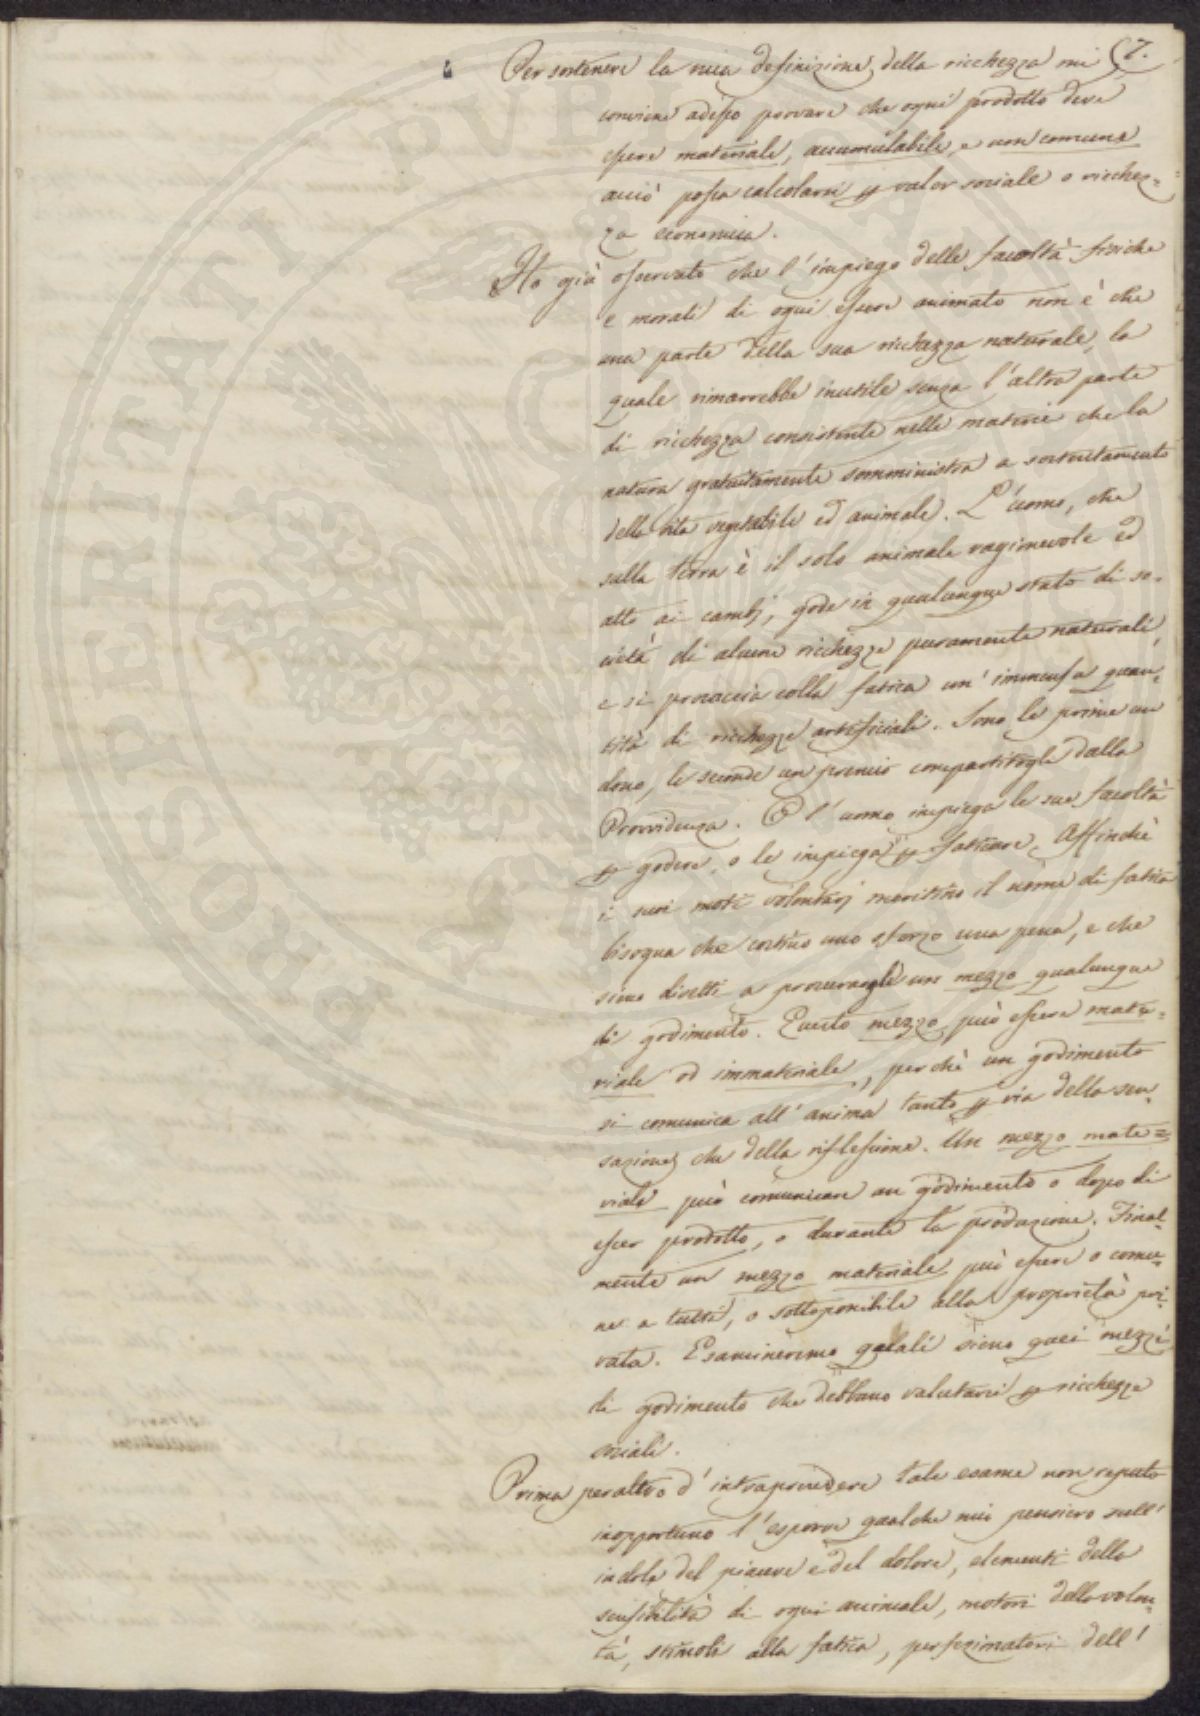 7.
Per sostenere la mia definizione della ricchezza mi
conviene adesso provare che ogni prodotto deve
essere materiale, accumulabile, e non comune
acciò possa calcolarsi p valor sociale o ricchez-
za economica.
Ho già osservato che l'impiego delle facoltà fisiche
e morali di ogni essere animato non è che
una parte della sua ricchezza naturale, la
quale rimarrebbe inutile senza l'altra parte
di ricchezza consistente nelle materie che la
natura gratuitamente somministra a sostentamento
della vita vegetabile ed animale. L'uomo, che
sulla terra è il solo animale ragionevole ed
atto ai cambj, gode in qualunque stato di so-
cietà di alcune ricchezze puramente naturali,
e si procaccia colla fatica un'immensa quan-
tità di ricchezze artificiali. Sono le prime un
dono, le seconde un premio compartitogli dalla
Provvidenza. O l'uomo impiega le sue facoltà
p godere, o le impiega p faticare. Affinchè
i suoi moti volontarj meritino il nome di fatica
bisogna che costino uno sforzo una pena, e che
sieno diretti a procurargli un mezzo qualunque
di godimento. Questo mezzo può essere mate-
riale od immateriale, perchè un godimento
si comunica all'anima tanto p via della sen-
sazione che della riflessione. Un mezzo mate-
riale può comunicare un godimento o dopo di
esser prodotto, o durante la produzione. Final-
mente un mezzo materiale può essere o comu-
ne a tutti, o sottoponibile alla proprietà pri-
vata. Esamineremo quali sieno quei mezzi
di godimento che debbano valutarsi p ricchezze
sociali.
Prima peraltro d'intraprendere tale esame non reputo
inopportuno l'esporre qualche mio pensiero sull'
indole del piacere e del dolore, elementi della
sensibilità di ogni animale, motori della volon-
tà, stimoli alla fatica, perfezionatori dell'
PROSPERITATI PUBL